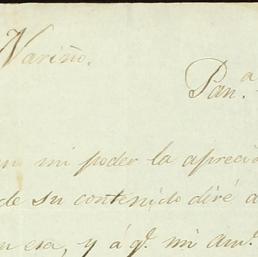 Nariño.
Pan.ª
mi poder la apreciá
de su contenido diré a
esa, y á q.e mi am.o